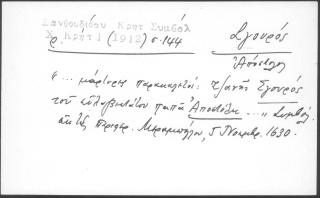 Ξανθουδίδου Κρητ Συμβολ
Χ. Κρητ 1 (1912) σ. 144
Σγουρός
Ἀπόστολος
"... μάρτυρες παρακαλητοί: τζανῆς Σγουρός
τοῦ εὐλαβεστάτου παπᾶ Ἀποστόλη ..." Συμβόλ.
ἐκ τῆς περιφερ. Μεραμπέλου, 5 Νοεμβρ. 1630.